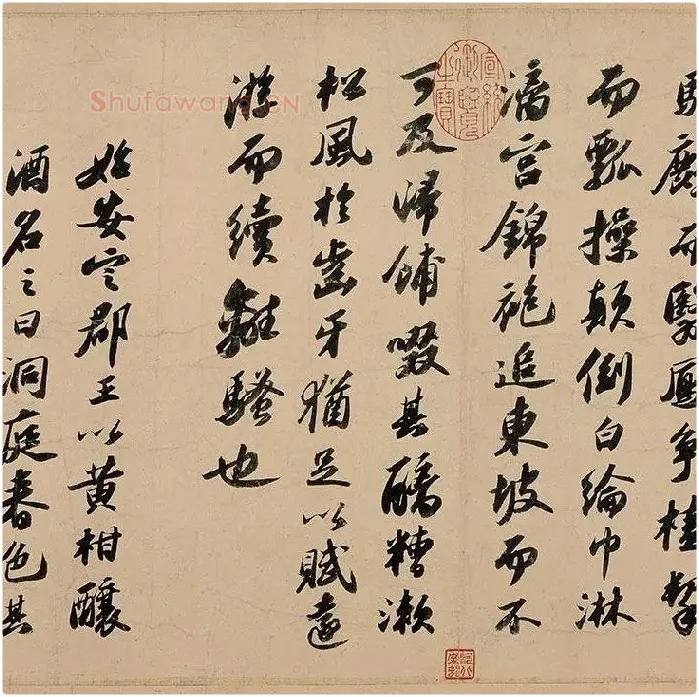 騎麐而翳鳳爭榼挈
而瓢操顛倒白綸巾淋
漓宮錦袍追東坡而不
可及歸餔歠其醨糟漱
松風於齒牙猶足以賦遠
游而續離騷也
始安定郡王以黃柑釀
酒名之曰洞庭春色其
宣統御覽之寶
Shufawang.CN